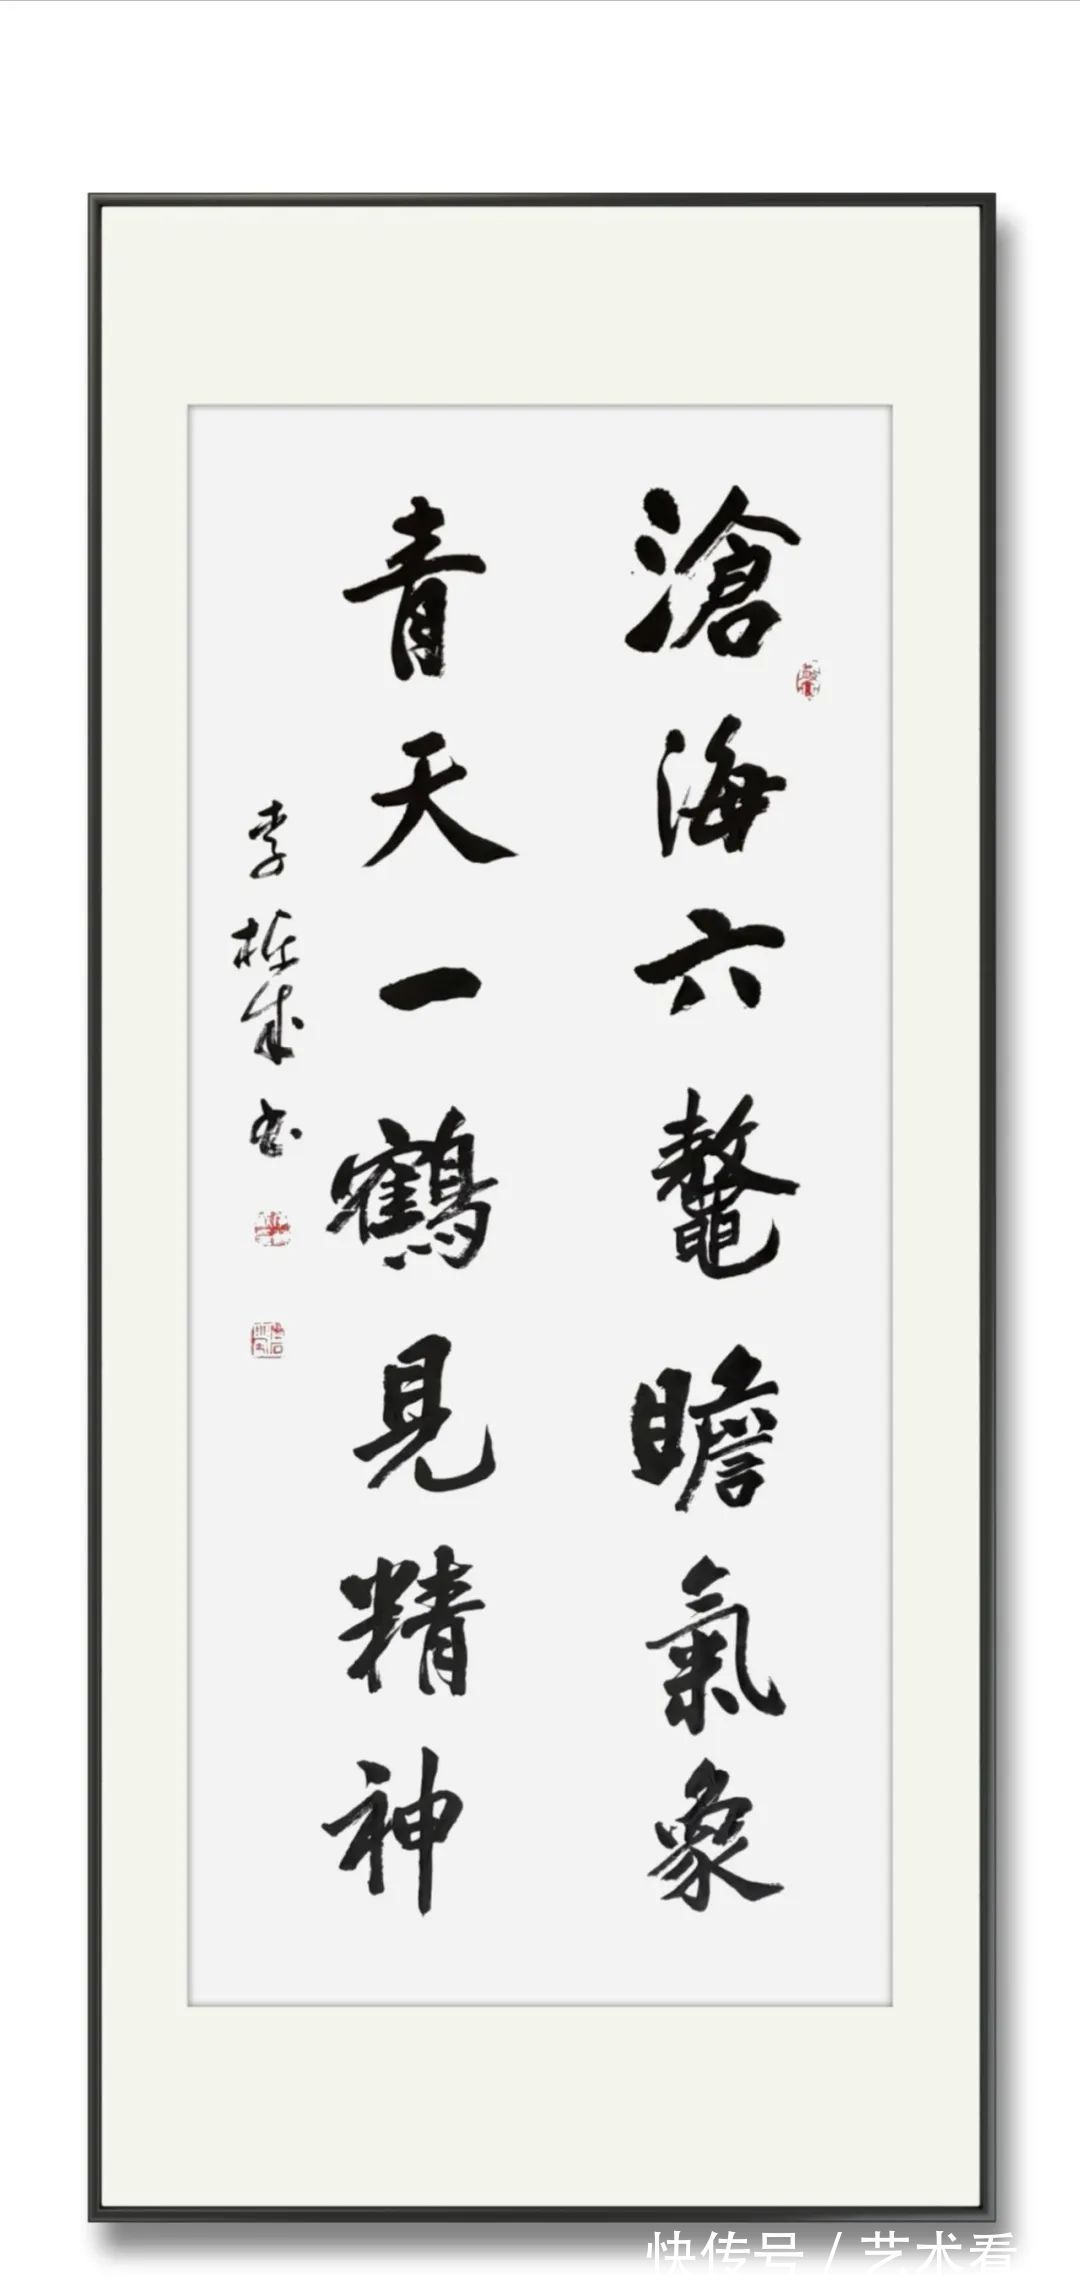 滄海六鼇瞻氣象
青天一鶴見精神
李
書
快传号 / 艺术看